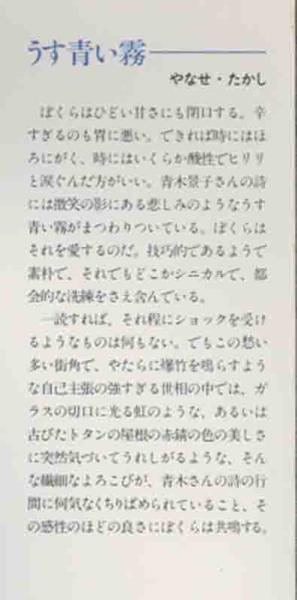 うす青い霧
やなせ・たかし
ぼくらはひどい甘さにも閉口する。辛
すぎるのも胃に悪い。できれば時にはほ
ろにがく、時にはいくらか酸性でヒリリ
と涙ぐんだ方がいい。青木景子さんの詩
には微笑の影にある悲しみのようなうす
青い霧がまつわりついている。ぼくらは
それを愛するのだ。技巧的であるようで
素朴で、それでもどこかシニカルで、都
会的な洗練をさえ含んでいる。
一読すれば、それ程にショックを受け
るようなものは何もない。でもこの愁い
多い街角で、やたらに爆竹を鳴らすよう
な自己主張の強すぎる世相の中では、ガ
ラスの切口に光る虹のような、あるいは
古びたトタンの屋根の赤錆の色の美しさ
に突然気づいてうれしがるような、そん
な繊細なよろこびが、青木さんの詩の行
間に何気なくちりばめられていること、そ
の感性のほどの良さにぼくらは共鳴する。